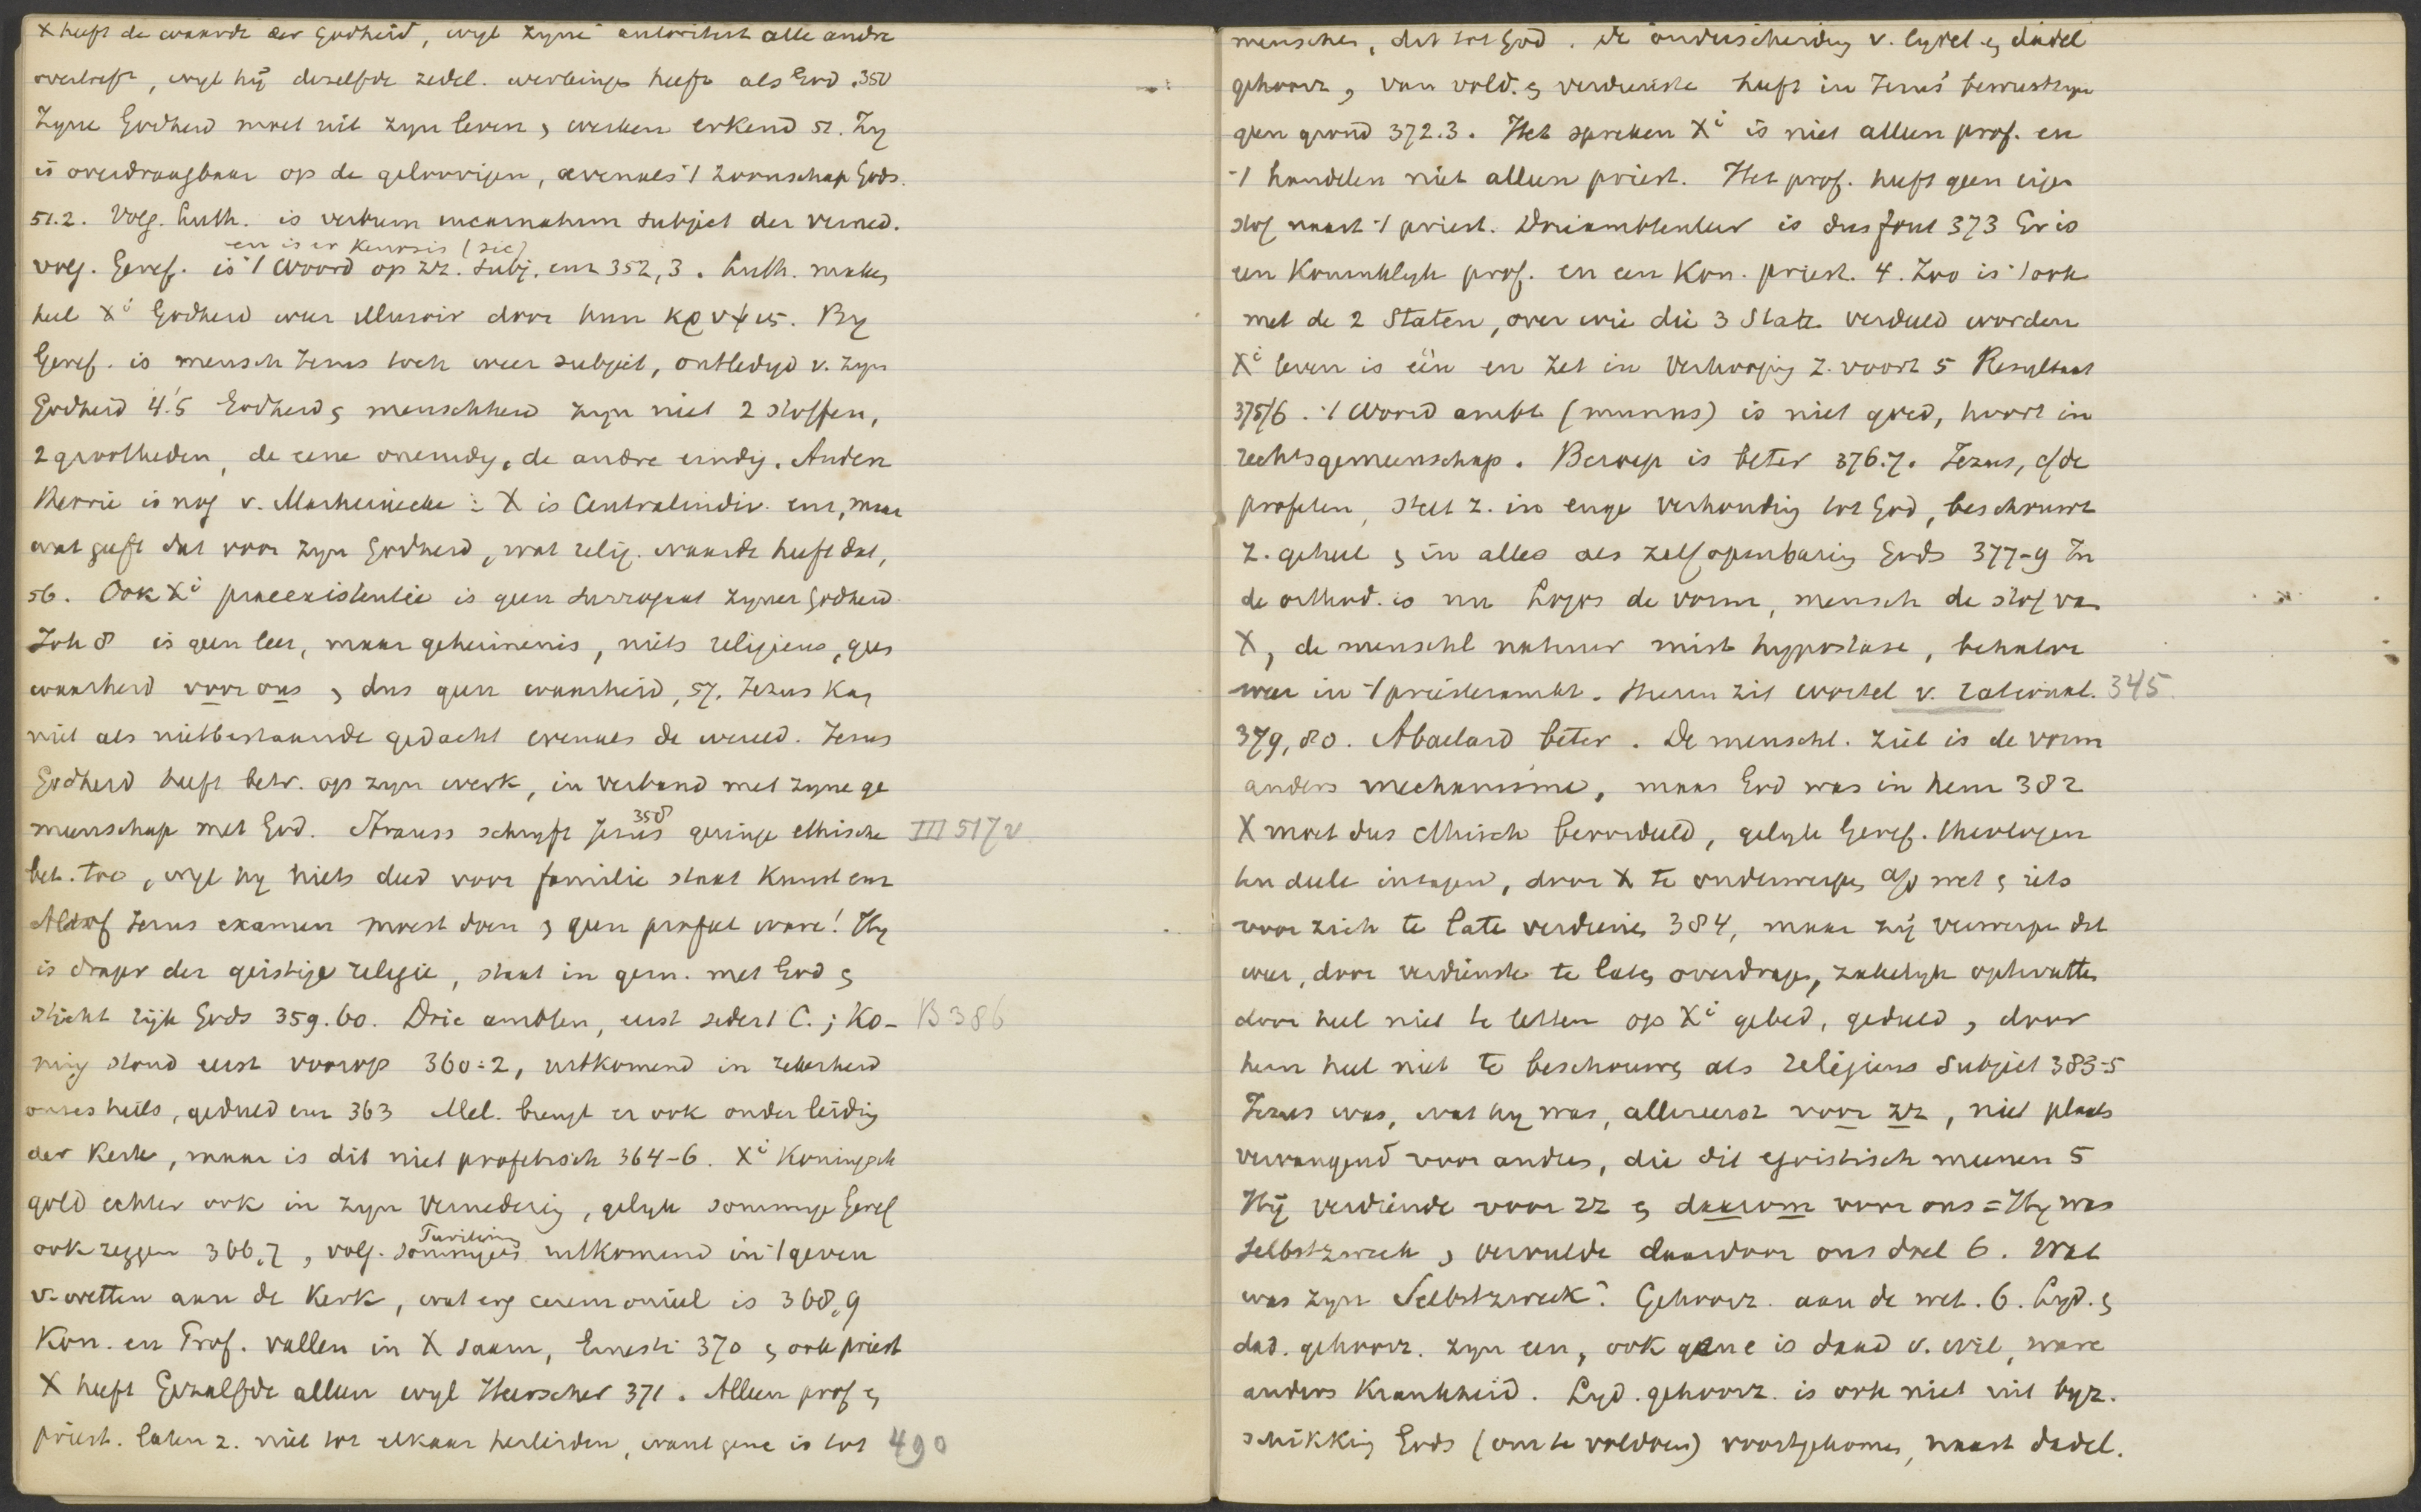 X heeft de waarde der Godheid, wyl zyne autoriteit alle andre
overtreft, wyl hij dezelfde zedel. werkingen heeft als God. 350
Zyne Godheid moet uit zyn leven & werken erkend 51. Zy
is overdraagbaar op de geloovigen, evenals 't zoonschap Gods.
51.2. Volg. Luth. is verbum incarnatum subject der verned.
en is er kenosis (sic)
volg. Geref. is 't Woord op zz. subj. enz 352,3. Luth. maken
heel Xi Godheid weer illusoir door hun κρυψις. By
Geref. is mensch Jezus toch weer subject, ontledigd v. zyn
Godheid 4.5 Godheid & menschheid zyn niet 2 stoffen,
2 grootheden, de eene oneindig, de andre eindig. Andere
theorie is nog v. Marheinecke: X is Centralindiv. enz, maar
wat geeft dat voor zyn Godheid, wat relig. waarde heeft dat,
56. Ook Xi praeexistentie is geen surrogaat zyner Godheid
Joh 8 is geen leer, maar geheimenis, niets religieus, geen
waarheid voor ons & dus geen waarheid, 57. Jezus kan
niet als nietbestaande gedacht evenals de wereld. Jezus
Godheid heeft betr. op zyn werk, in verband met zyne ge
meenschap met God. Strauss schryft Jezus 358 geringe ethische III 517 v
bet. toe, wyl hy niets deed voor familie staat kunst enz
Alsof Jezus examen moest doen & geen profeet ware! Hy
is drager der geestige religie, staat in gem. met God &
sticht rijk Gods 359.60. Drie ambten, eerst sedert C.; Ko- B 386
ning stond eerst voorop 360:2, uitkomend in zekerheid
onzes heils, geduld enz 363 Mel. brengt er ook onder leiding
der Kerk, maar is dit niet profetisch 364-6. Xi Koningsch
gold echter ook in zyn vernedering, gelyk sommige Geref
ook zeggen 366.7, volg. sommigen Turretin uitkomend in 't geven
v. wetten aan de Kerk, wat erg ceremonieel is 368,9
Kon. en Prof. vallen in X saam, Ernesti 370 & ook priest
X heeft Gezalfde alleen wyl Heerscher 371. Alleen prof &
priest. laten z. niet tot elkaar herleiden, want gene is tot 490
menschen, dit tot God. De onderscheiding v. lydel. & dadel
gehoorz, van vold. & verdienste heeft in Jezus' bewustzyn
geen grond 372.3. Het spreken Xi is niet alleen prof. en
't handelen niet alleen priest. Het prof. heeft geen eigen
stof naast 't priest. Drieambtenleer is dus fout 373 Er is
een Koninklyk prof. en een Kon. priest. 4. Zoo is 't ook
met de 2 Staten, over wie die 3 State verdeeld worden
Xi leven is één en zet in Verhooging z. voort 5 Resultaat
375/6. 't Woord ambt (munus) is niet goed, hoort in
rechtsgemeenschap. Beroep is beter 376.7. Jezus, c/de
profeten, stelt z. in enge verhouding tot God, beschouwt
z. geheel & in alles als zelfopenbaring Gods 377-9 In
de orthod. is nu Logos de vorm, mensch de stof van
X, de menschl natuur mist hypostase, behalve
weer in 't priesterambt. Hierin zit wortel v. rational. 345
379,80. Abaelard beter. De menschl. ziel is de vorm
anders mechanisme, maar God was in hem 382
X moet dus ethisch beoordeeld, gelyk Geref. theologen
ten deele inzagen, door X te onderwerpen a/d wet & iets
voor zich te late verdienen 384, maar zij verwerpen dat
weer, door verdienste te laten overdragen, zakelyk opvatten
door heel niet te letten op Xi gebed, geduld, door
hem heel niet te beschouwen als religieus subject 383-5
Jezus was, wat hy was, allereerst voor zz, niet plaats
vervangend voor andren, die dit egoistisch meenen 5
Hij verdiende voor zz & daarom voor ons = Hy was
Selbstzweck & vervulde daardoor ons doel 6. Wat
was zyn Selbstzweck? Gehoorz. aan de wet. 6. Lyd. &
dad. gehoorz. zyn een, ook gene is daad v. wil, ware
anders Krankheid. Lyd. gehoorz. is ook niet uit byz.
schikking Gods (om te voldoen) voortgekomen, naast dadel.